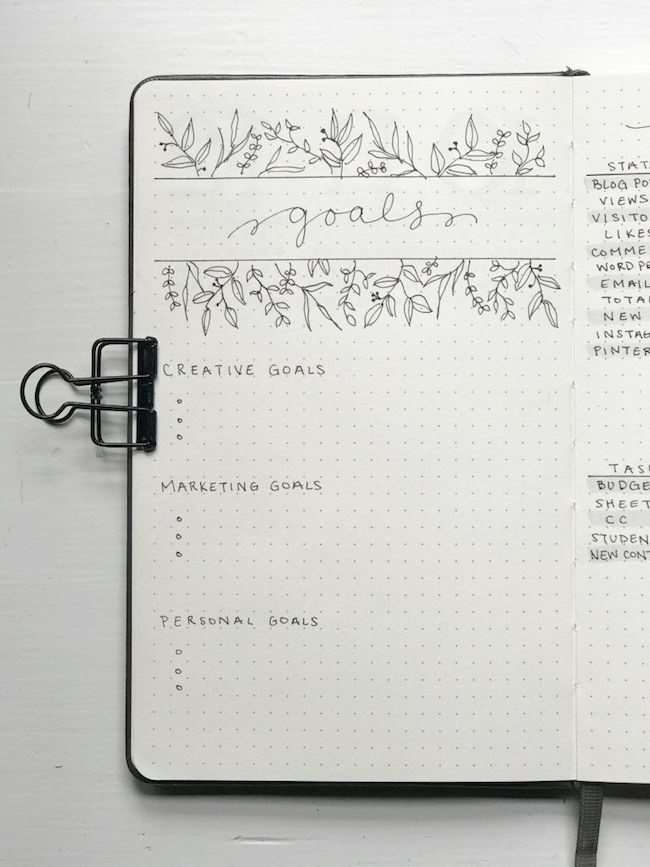 goals
CREATIVE GOALS
MARKETING GOALS
PERSONAL GOALS
STAT
BLOG PO
VIEWS
VISITO
LIKES
COMME
WORD PE
EMAIL
TOTA
NEW
INSTAG
PINTER
TAS
BUDGE
SHEET
CC
STUDEN
NEW CONT